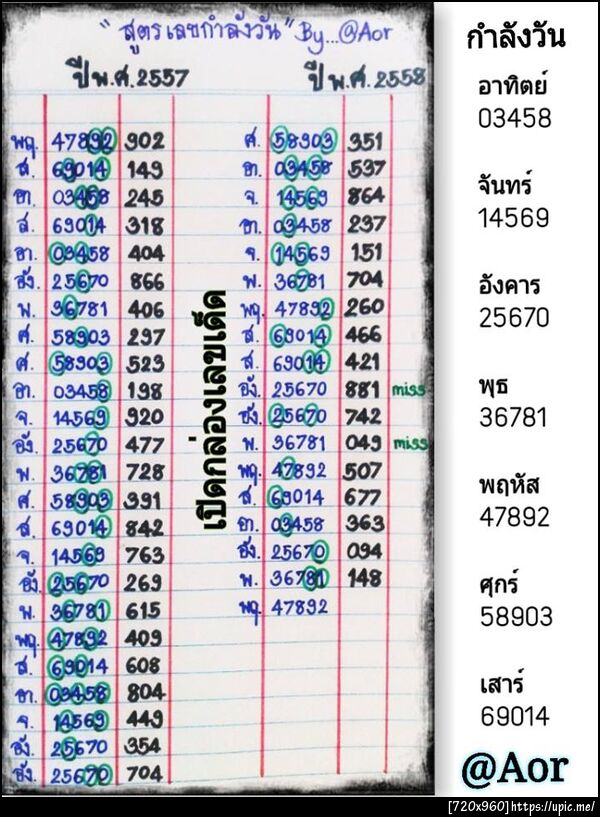 "สูตรเลขกำลังวัน" By...@Aor
ปี พ.ศ.2557
พฤ. 47892 902
ส. 69014 149
อา. 03458 245
ส. 69014 318
อา. 03458 404
อัง. 25670 866
พ. 36781 406
ศ. 58903 297
ศ. 58903 523
อา. 03458 198
จ. 14569 920
อัง. 25670 477
พ. 36781 728
ศ. 58903 391
ส. 69014 842
จ. 14569 763
อัง. 25670 269
พ. 36781 615
พฤ. 47892 409
ส. 69014 608
อา. 03458 804
จ. 14569 449
อัง. 25670 354
อัง. 25670 704
เปิดกล่องเลขเด็ด
ปี พ.ศ.2558
ศ. 58903 351
อา. 03458 537
จ. 14569 864
อา. 03458 237
จ. 14569 151
พ. 36781 704
พฤ. 47892 260
ส. 69014 466
ส. 69014 421
อัง. 25670 881 miss
อัง. 25670 742
พ. 36781 049 miss
พฤ. 47892 507
ส. 69014 677
อา. 03458 363
อัง. 25670 094
พ. 36781 148
พฤ. 47892
กำลังวัน
อาทิตย์
03458
จันทร์
14569
อังคาร
25670
พุธ
36781
พฤหัส
47892
ศุกร์
58903
เสาร์
69014
@Aor
[720x960]https://upic.me/